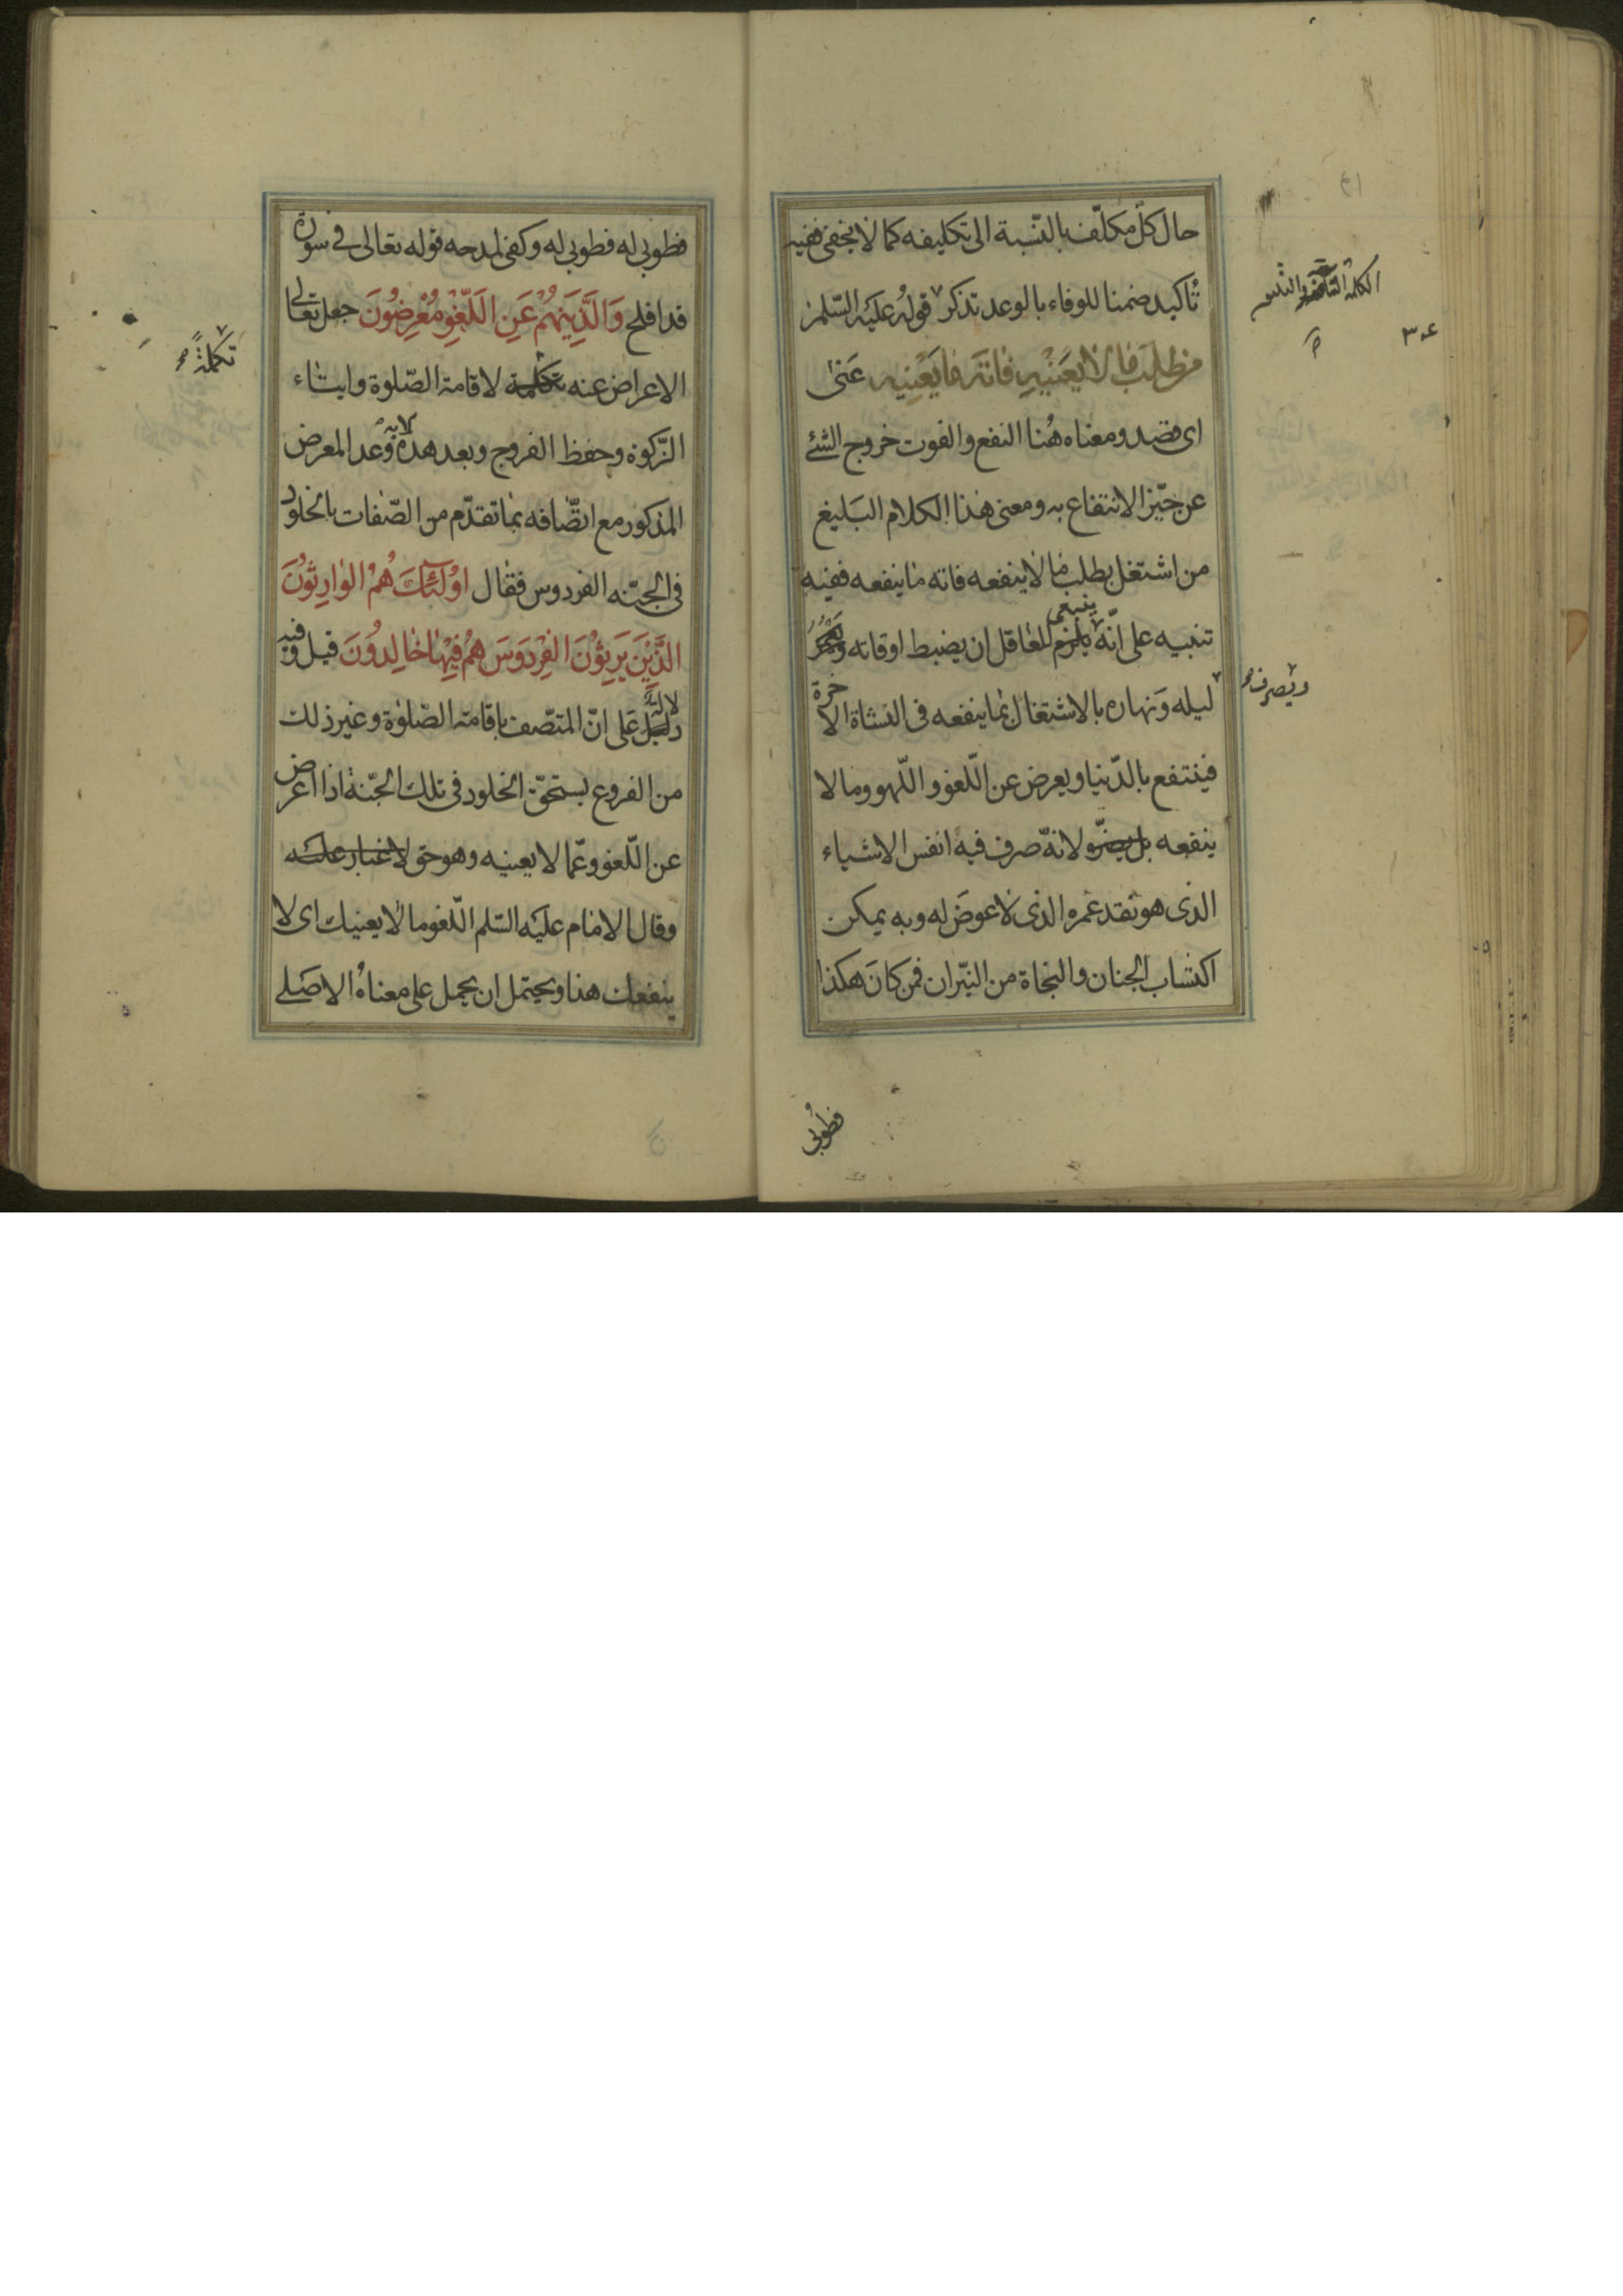 حال كلّ مكلّف بالنّسبة الى تكليفه كما لا يخفى ففيه
تأكيد ضمنا للوفاء بالوعد تذكر قوله عليه السّلم
من طلب ما لا يعنيه فاته ما يعنيه عنى
اى قصد ومعناه هنا النفع والفوت خروج الشئ
عن حيّز الانتفاع به ومعنى هذا الكلام البليغ
من اشتغل بطلب ما لا ينفعه فاته ما ينفعه ففيه
تنبيه على انّه يلزم ينبغى للعاقل ان يضبط اوقاته
ويصرف
ليله ونهاره بالاشتغال بما ينفعه فى النشاة الاخرة
فينتفع بالدّنيا ويعرض عن اللّغو واللّهو وما لا
ينفعه بل يضرّه ولانّه صرف فيه انفس الاشياء
الذى هو نقد عمره الذى لا عوض له وبه يمكن
اكتساب الجنان والنجاة من النيّران فمن كان هكذا
فطوبى
الكلمة
۳۰۴
فطوبى له فطوبى له وكفى لمدحه قوله تعالى فى سورة
قد افلح وَالَّذِينَ هُمْ عَنِ اللَّغْوِ مُعْرِضُونَ جعل تعالى
الاعراض عنه تكلمة لاقامة الصّلوة وايتاء
تكملة
الزّكوة وحفظ الفروج وبعد هذه الاية وعد المعرض
المذكور مع اتّصافه بما تقدّم من الصّفات بالخلود
فى الجنّه الفردوس فقال اُولئِكَ هُمُ الْوارِثُونَ
الَّذِينَ يَرِثُونَ الْفِرْدَوسَ هُمْ فِيها خالِدُونَ قيل وفيه
دلالة على انّ المتصّف باقامة الصّلوة وغير ذلك
من الفروع يستحقّ الخلود فى تلك الجنّة اذا اعرض
عن اللّغو وعّما لا يعنيه وهو حق لا غبار عليه
وقال الامام عليه السّلم اللّغو ما لا يعنيك اى لا
ينفعك هذا ويحتمل ان يحمل على معناه الاصلى